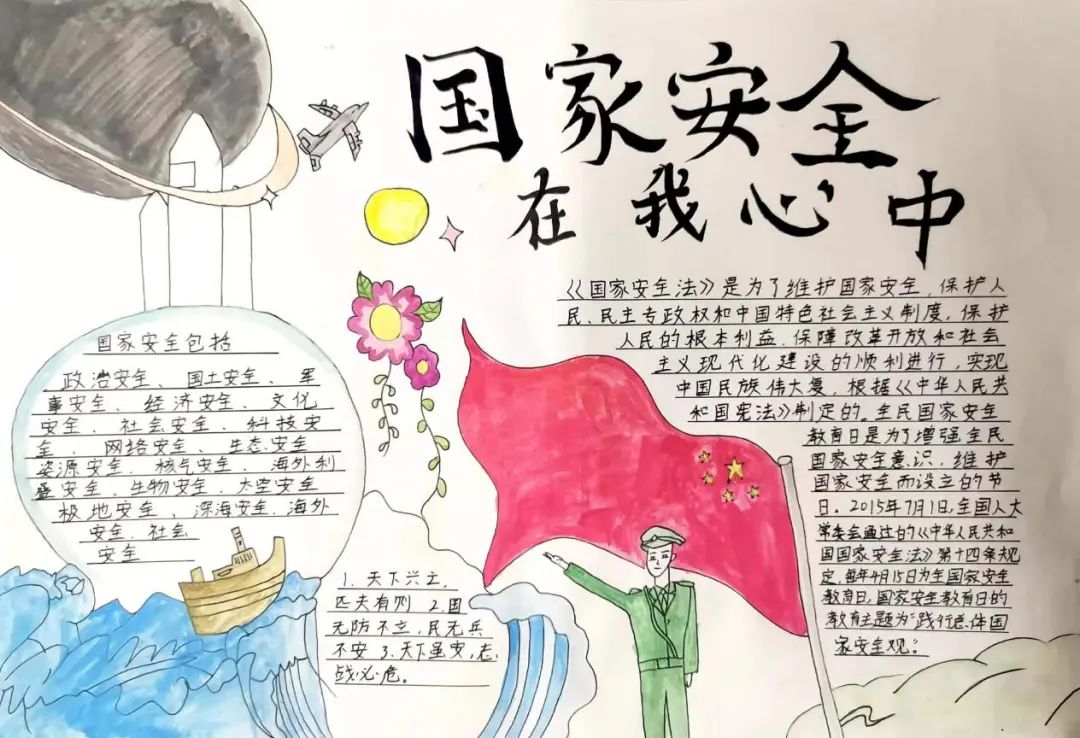 国家安全
在我心中
《国家安全法》是为了维护国家安全,保护人
民、民主专政权和中国特色社会主义制度,保护
人民的根本利益、保障改革开放和社会
主义现代化建设的顺利进行,实现
中国民族伟大复,根据《中华人民共
和国宪法》制定的。全民国家安全
教育日是为了增强全民
国家安全意识,维护
国家安全而设立的节
日。2015年7月1日,全国人大
常委会通过的《中华人民共和
国国家安全法》第十四条规
定,每年4月15日为全国家安全
教育日,国家安全教育日的
教育主题为"践行总体国
家安全观。"
国家安全包括
政治安全、国土安全、军
事安全、经济安全、文化
安全、社会安全、科技安
全、网络安全、生态安全
资源安全、核安全、海外利
益安全、生物安全、太空安全
极地安全、深海安全、海外
安全、社会
安全
1. 天下兴亡,
匹夫有则 2. 国
无防不立,民无兵
不安 3. 天下虽安,忘
战必危。